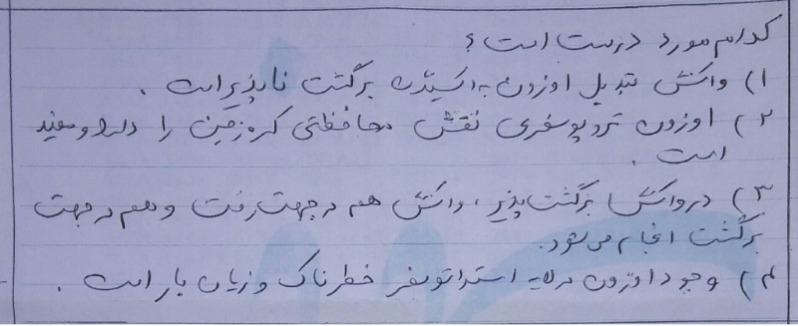 کدام مورد درست است ؟
۱) واکنش تبدیل اوزون به اکسیژن برگشت ناپذیر است .
۲) اوزون تروپوسفری نقش محافظتی کره زمین را دارد و مفید
است .
۳) در واکنش برگشت پذیر ، واکنش هم در جهت رفت و هم در جهت
برگشت انجام می شود.
۴) وجود اوزون در لایه استراتوسفر خطرناک و زیان بار است .